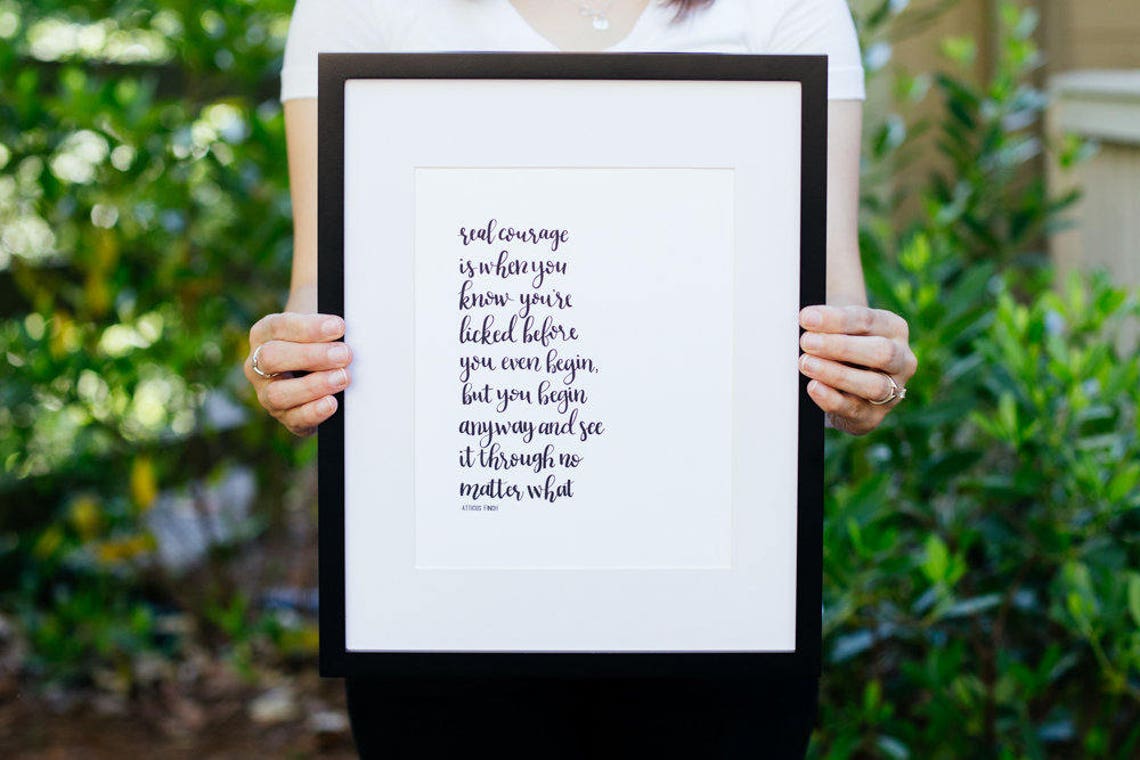 real courage
is when you
know you're
licked before
you even begin,
but you begin
anyway and see
it through no
matter what
ATTICUS FINCH